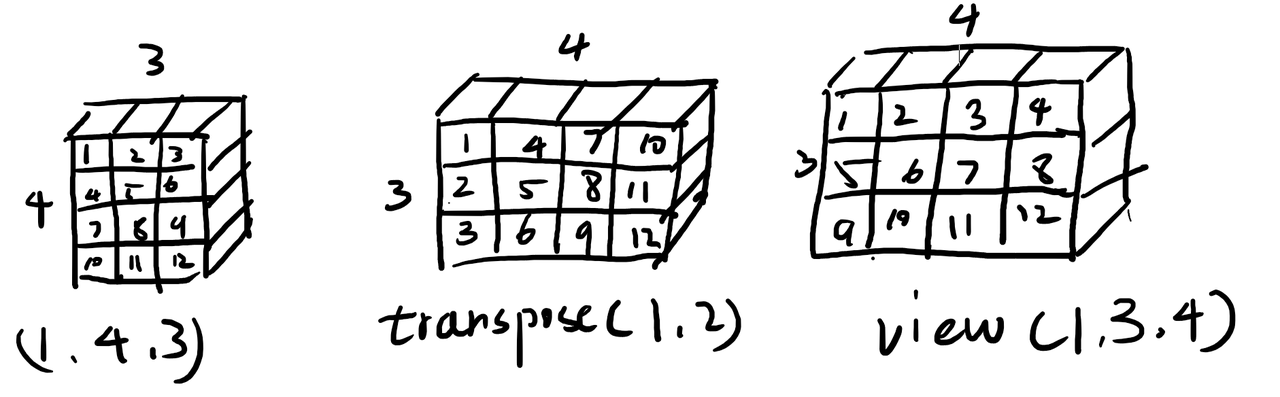 3
4
1 2 3
4 5 6
7 8 9
10 11 12
(1, 4, 3)
4
3
1 4 7 10
2 5 8 11
3 6 9 12
transpose(1, 2)
4
3
1 2 3 4
5 6 7 8
9 10 11 12
view (1, 3, 4)